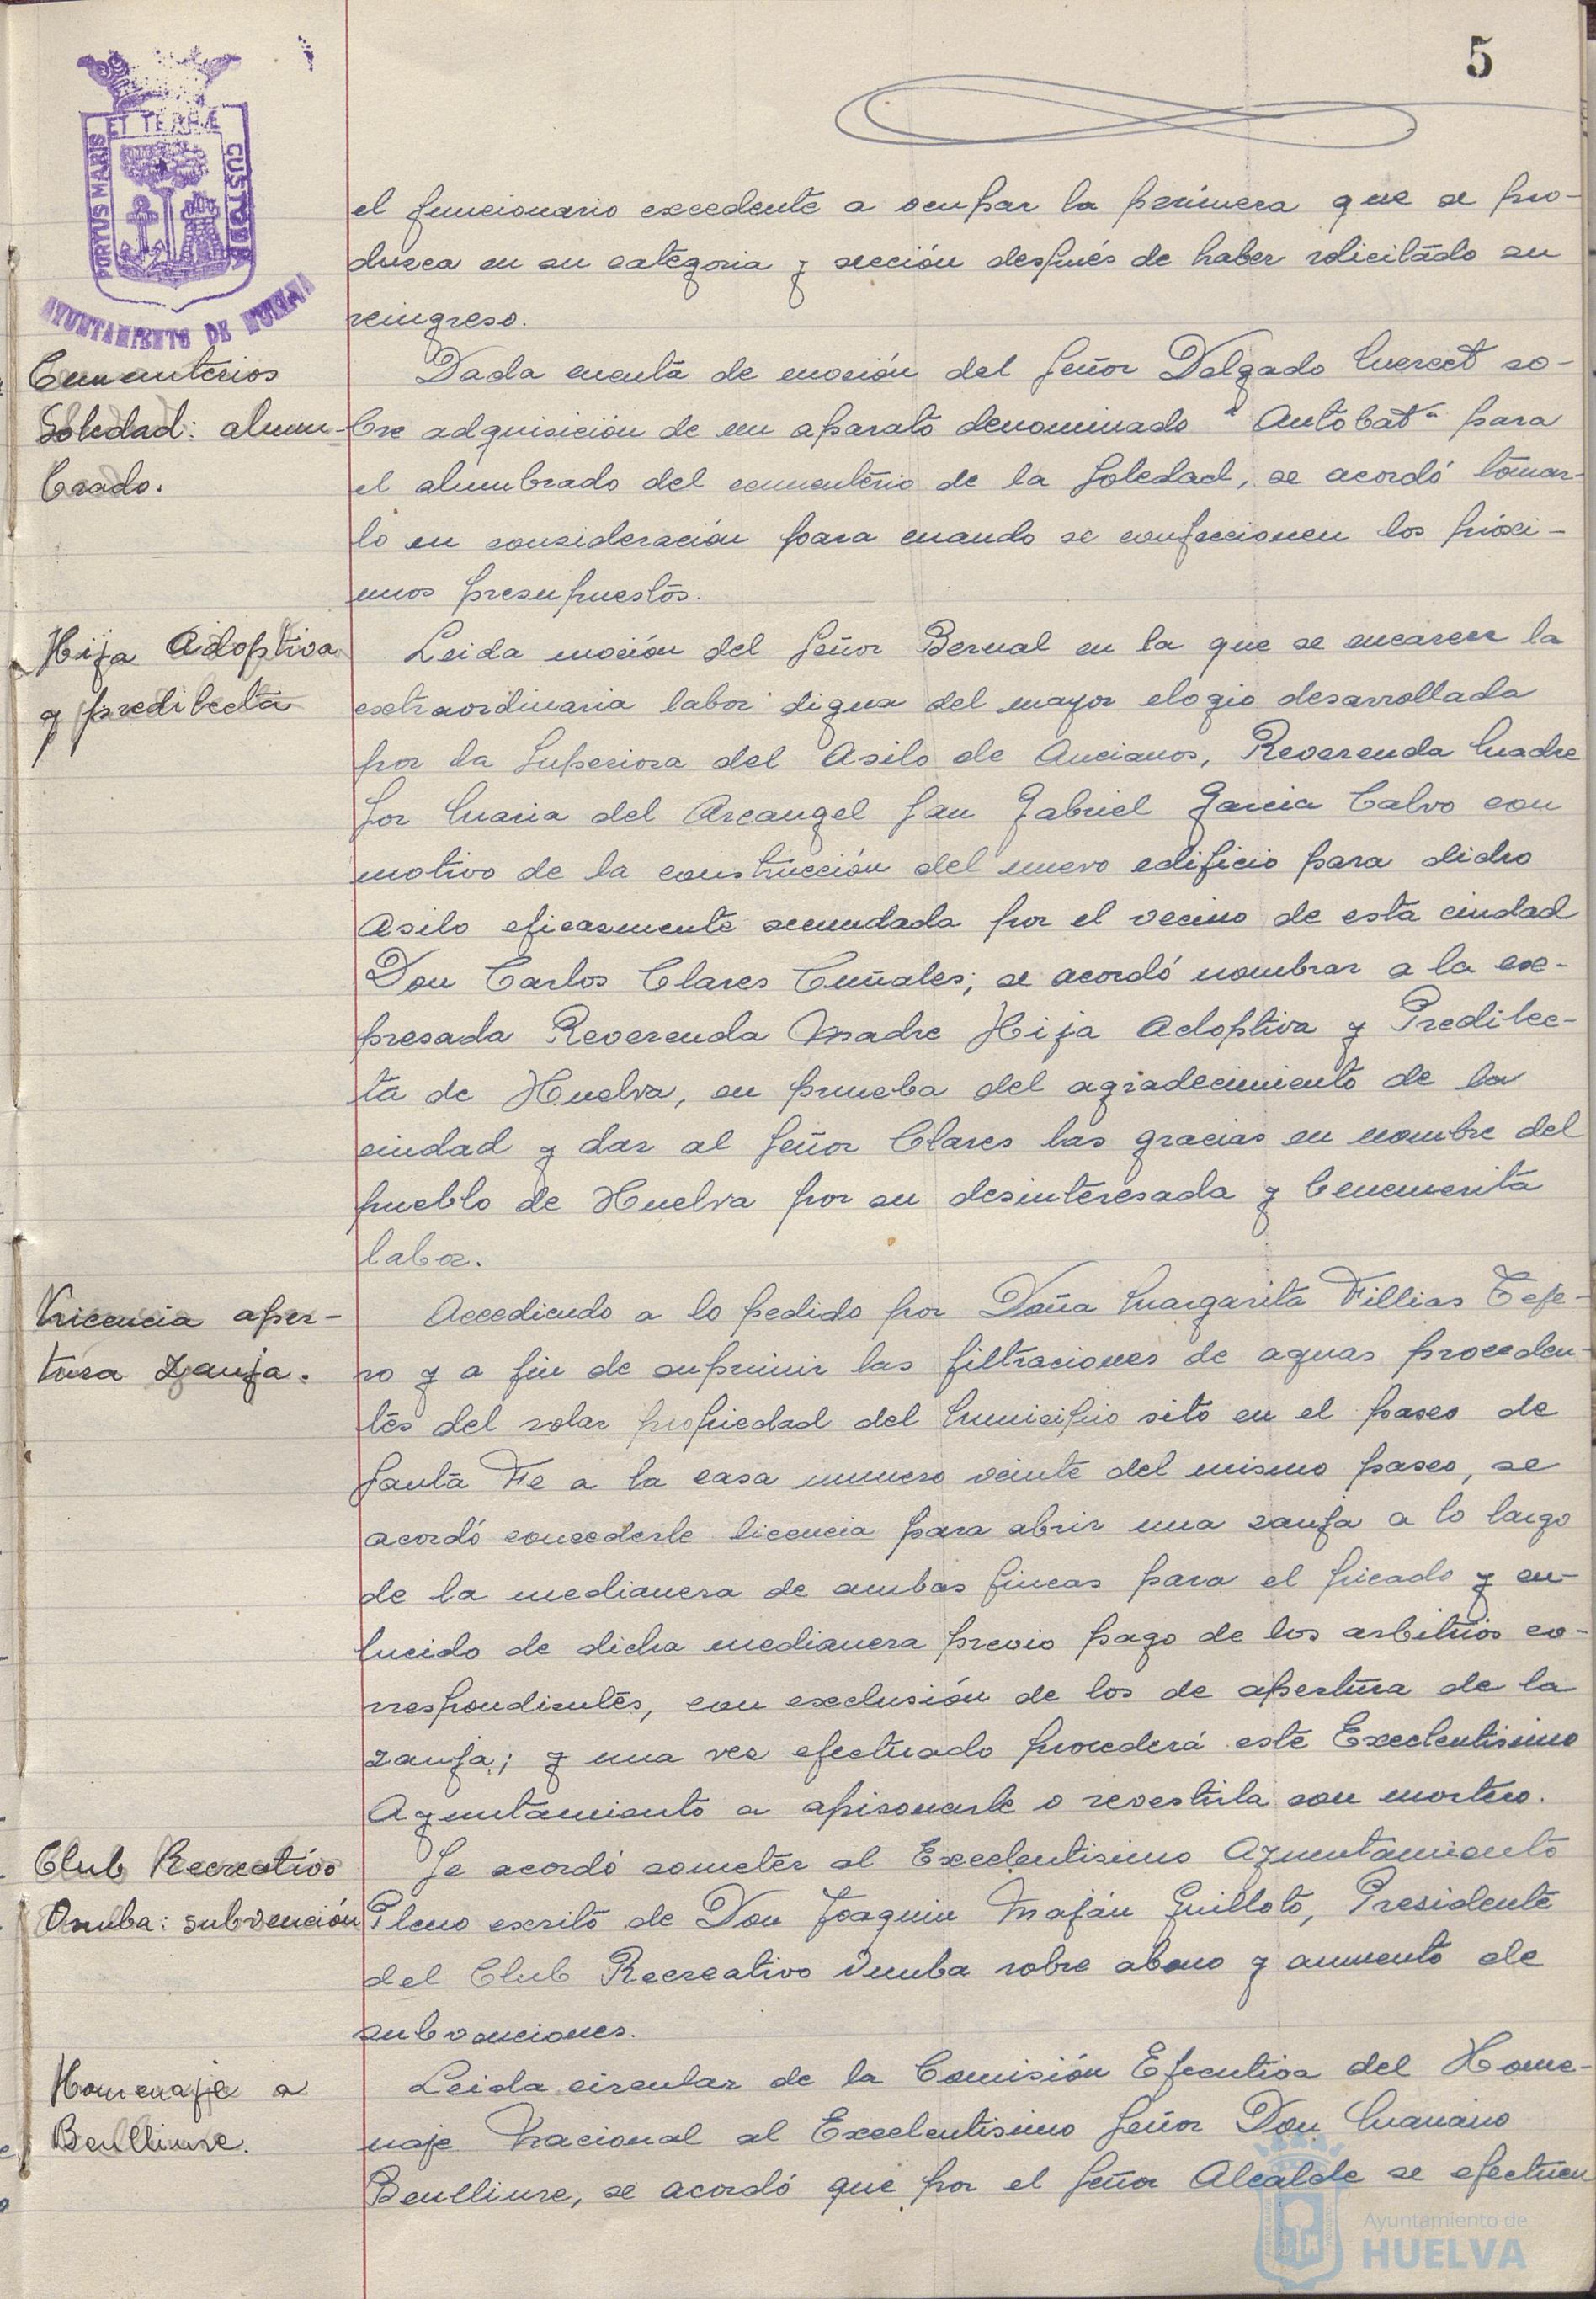 5
PORTUS MARIS
ET TERRÆ
CUSTODIA
AYUNTAMIENTO DE HUELVA
el funcionario excedente a ocupar la primera que se pro-
duzca en su categoria y sección después de haber solicitado su
reingreso.
Cementerios
Soledad: alum-
brado.
Dada cuenta de moción del Señor Delgado Mercet so-
bre adquisición de un aparato denominado "Autobat" para
el alumbrado del cementerio de la Soledad, se acordó tomar-
lo en consideración para cuando se confeccionen los próxi-
mos presupuestos.
Hija Adoptiva
y predilecta
Leida moción del Señor Bernal en la que se encarece la
extraordinaria labor digna del mayor elogio desarrollada
por la Superiora del Asilo de Ancianos, Reverenda Madre
Sor Maria del Arcangel San Gabriel Garcia Calvo con
motivo de la construcción del nuevo edificio para dicho
Asilo eficazmente secundada por el vecino de esta ciudad
Don Carlos Clares Cuñales; se acordó nombrar a la ex-
presada Reverenda Madre Hija Adoptiva y Predilec-
ta de Huelva, en prueba del agradecimiento de la
ciudad y dar al Señor Clares las gracias en nombre del
pueblo de Huelva por su desinteresada y benemerita
labor.
Licencia aper-
tura zanja.
Accediendo a lo pedido por Doña Margarita Fillias Teje-
ro y a fin de suprimir las filtraciones de aguas proceden-
tes del solar propiedad del Municipio sito en el paseo de
Santa Fe a la casa numero veinte del mismo paseo, se
acordó concederle licencia para abrir una zanja a lo largo
de la medianera de ambas fincas para el picado y en-
lucido de dicha medianera previo pago de los arbitrios co-
rrespondientes, con exclusión de los de apertura de la
zanja; y una vez efectuado procederá este Excelentisimo
Ayuntamiento a apisonarle o revestirla con mortero.
Club Recreativo
Onuba: subvención
Se acordó someter al Excelentisimo Ayuntamiento
Pleno escrito de Don Joaquin Maján Guilloto, Presidente
del Club Recreativo Onuba sobre abono y aumento de
subvenciones.
Homenaje a
Benlliure.
Leida circular de la Comisión Ejecutiva del Home-
naje Nacional al Excelentisimo Señor Don Mariano
Benlliure, se acordó que por el Señor Alcalde se efectuen
Ayuntamiento de
HUELVA